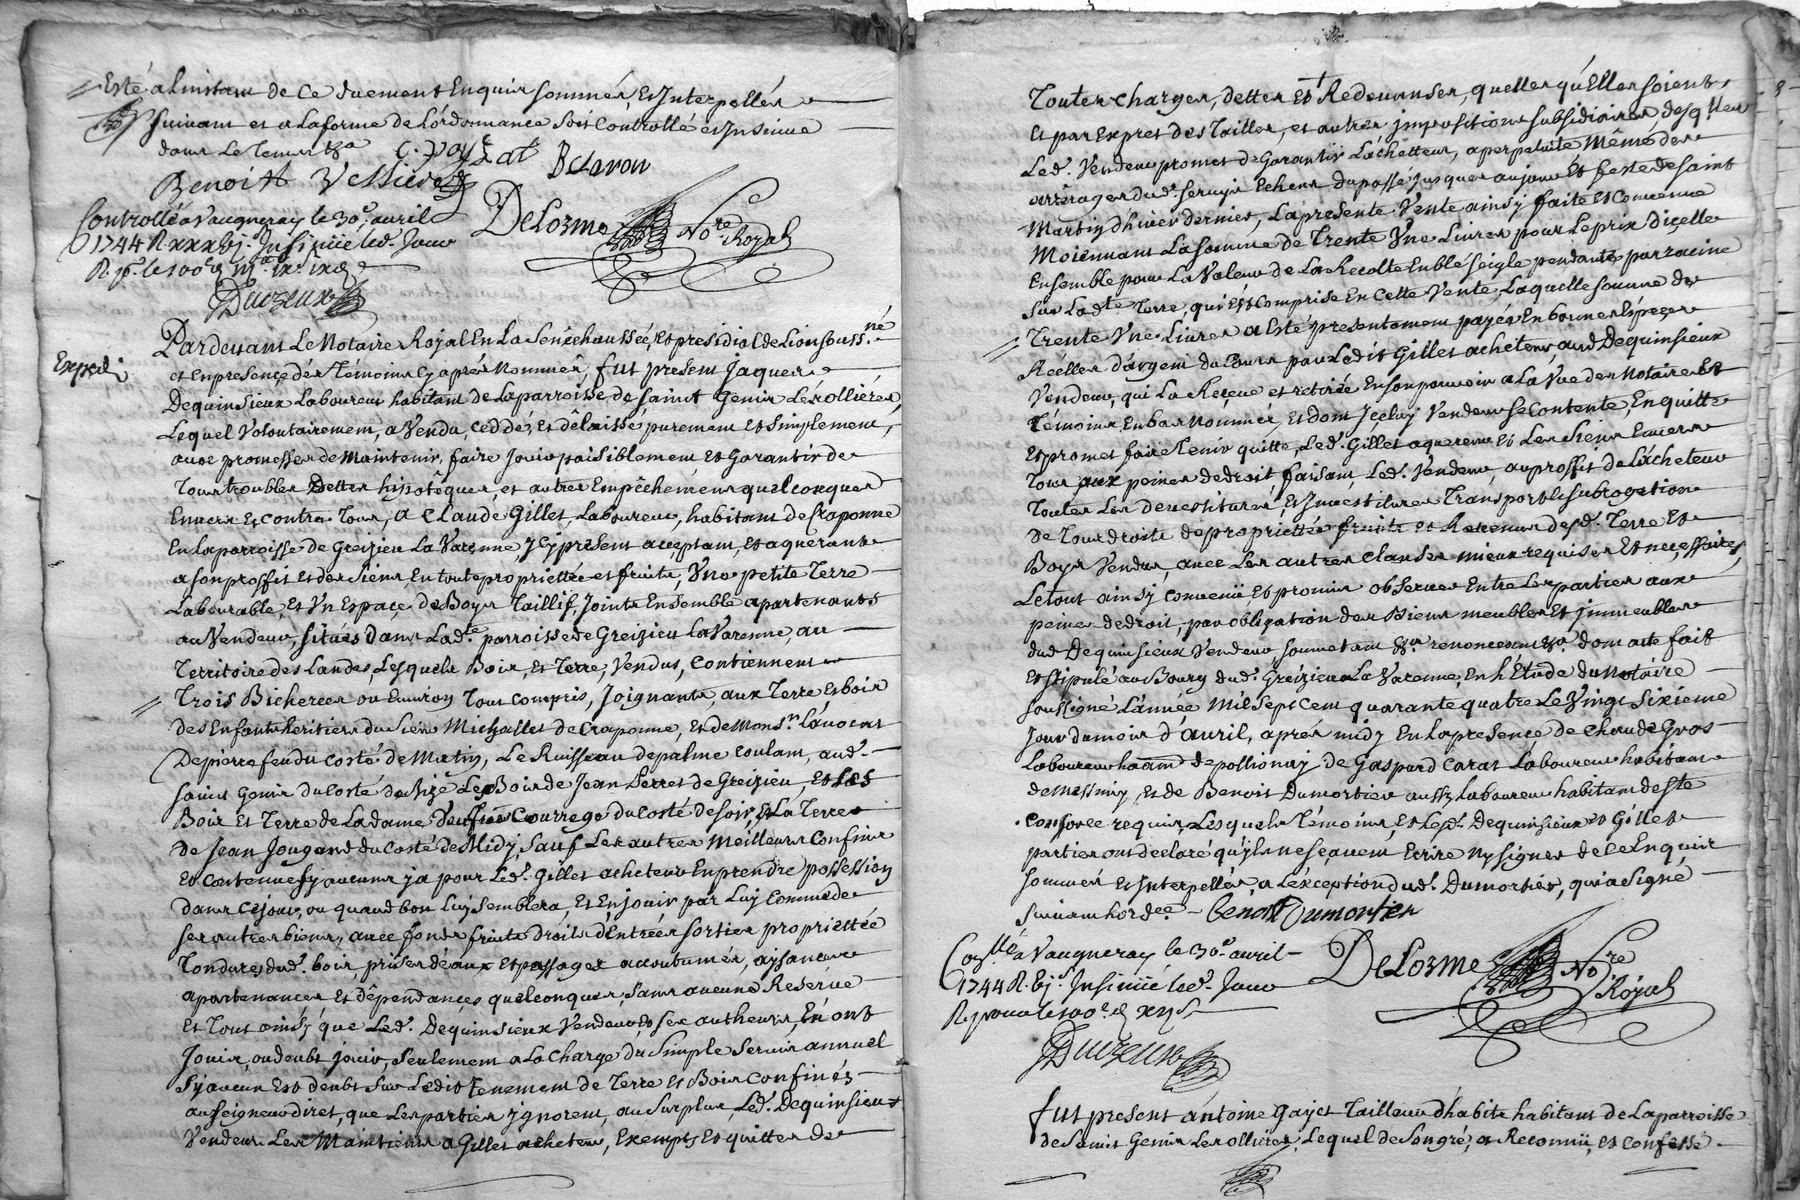 Esté a Linstans de Ce duement Enquis sommés, Et Interpellés
suivant et a Laforme de Lórdonnance Soit Controllé et Insinué
dans Le Tems &a C. payzat B Clavon
Benoist Vessiere
Controllé a Vaugneray le 30e. avril
1744 R xxxbj s. Insinüé led. Jour
R. pr. le 100e d
Duizeux
DeLorme Nore. Royal
Expedié
Pardevant Le Notaire Royal En La Senechaussée, Et presidial de Lion souss.né
et En presence des Témoins Cy aprés Nommés, fut present Jaques
Dequinsieux Laboureur habitant de Laparroisse de saint Genis Lésollieres,
Lequel Volontairement, a Vendu, Ceddé, Et Délaissé, purement Et simplement,
avec promesses de Maintenir, faire Jouir paisiblement Et Garantir de
Tous troubles Dettes hipotêques, et autres Empêchémens quelconques
Envers Et Contre Tous, a Claude Gillet, Laboureur, habitant de Craponne
En Laparroisse de Greizieu La Varenne, Jcy présent acceptant, Et aquerant
a son proffit Et des siens En toute propriettée et fruits, Vne petite Terre
Labourable, Et Vn Espaçe de Boys Taillif, Joints Ensemble apartenants
au Vendeur, sitüés Dans Lad.te parroisse de Greizieu La Varenne, au
Territoire des Landes, Lesquels Bois, Et Terre, Vendus, Contiennent
Trois Bicherées ou Environ Tout Compris, Joignants, aux Terre Et bois
des Enfants heritiers du sieur Michallet de Craponne, Et de Mons.r Lávocat
Depierrefeu du Costé de Matin, Le Ruisseau depalme coulant, aud.
saint Genis du Costé de Bize Les Bois de Jean Serret de Greizieu, Et Les
Bois Et Terre de La dame Courrege du Costé de soir, Et La Terre
de Jean Jougand du Costé de Midy, Sauf Les autres Meilleurs Confins
Et Contenues sy aucuns ja pour Led. Gillet acheteur En prendre possession
dans Cejour, ou quand bon Luy semblera, Et En jouir par Luy Comme de
ses autres biens, avec fonds fruits Droits d'Entrées sorties propriettée
Tondures dud. bois, prises déaux Et passages accoutumés, aysances
apartenances Et dépendances quelconques, sans aucune Reserve
Et Tout ainsy que Led. Dequinsieux Vendeur, Et ses autheurs, En ont
Joüis, ou deubt jouir, seulement a La Charge du Simple Servis annuel
Sy aucun Est deubt sur Ledit tenement de Terre Et Bois Confinés
au seigneur diret, que Les parties ygnorent, au surplus Led. Dequinsieux
Vendeur Les Maintiens a Gillet acheteur, Exempts Et quittes de
Toutes Charges, dettes Et Redevanses, quelles qu'Elles soient
Et par Exprés des Tailles, et autres jmpositions subsidiaires, desq.lles
Led. Vendeur promet de Garantir Láchetteur, a perpetuité Même des
arrérages dud. servis Echeus du passé jusques aujour Et feste de saint
Martin d'hiver dernier, La presente Vente ainsy faite Et Convenue
Moiennant La somme de Trente Vne Livres pour Le prix Dicelle
Ensemble pour La Valeur de La Recolte En blé seigle pendante par racine
Sur Lad.te Terre, qui Est Comprise En Cette Vente, Laquelle somme de
Trente Vne Livres a Esté présentement payée En bonnes Espeçes
Réelles d'argent du Cours par Ledit Gillet acheteur aud. Dequinsieux
Vendeur, qui La Reçeue et retirée En son pouvoir a La Vue des Notaire Et
Témoins En bas nommés, Et dont Jçeluy Vendeur se Contente, En quitte
Et promet faire Tenir quitte, Led. Gillet aquereur Et Les siens Envers
Tous aux peines de droit, faisant, Led. Vendeur, au proffit de Lácheteur
Toutes Les devestitures, Et Investitures Transport Et subrogation
de Tous droits de propriettée fruits et Revenus desd. Terre Et
Boys Vendus, avec Les autres Clauses mieux requises Et neçessaires,
Le Tout ainsy Convenü Et promis observer Entre Les parties aux
peines de droit, par obligation des Biens meubles Et Jmmeubles
dud Dequinsieux Vendeur soumetant &a. renonceant &a. dont acte fait
Et stipulé au Bourg dud. Greizieu La Varenne, En L'Etude du Notaire
soussigné L'année Mil sept Cent quarante quatre Le Vingt sixieme
Jour du mois d'avril, aprés midy En La presence de Claude Gros
Laboureur ha.ant de pollionay de Gaspard Carat Laboureur habitant
de Messimy, Et de Benoit Dumortier aussy Laboureur habitant de Ste
Consorce requis, Lesquels Témoins, Et Lesd. Dequinsieux Et Gillet
parties ont declaré qu'jls ne sçavent Ecrire Ny signer de Ce Enquis
sommés Et Interpellés, a Léxception dud. Dumortier, qui a signé
suivant Lord.ee - Benoit Dumortier
Con.llé a Vaugneray le 30e. avril
1744 R. bj s. Insinüé led. Jour
R. pour le 100e d
Duizeux
DeLorme Nore. Royal
fut present Antoine Gayet Tailleur d'habits habitant de Laparroisse
de Saint Genis Les ollieres, Lequel de son gré, a Reconnü, Et Confessé